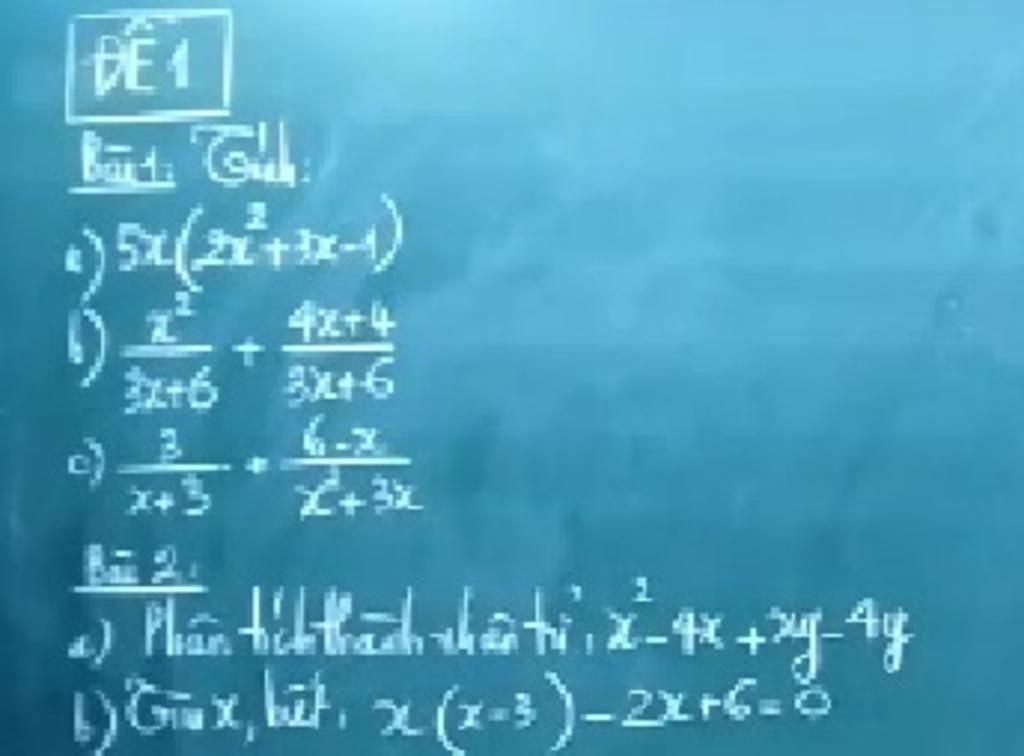 ĐỀ 1
Bài 1: Tính:
a) 5x(2x²+3x-1)
b) x²/(3x+6) + (4x+4)/(3x+6)
c) 3/(x+3) + (6-x)/(x²+3x)
Bài 2:
a) Phân tích thành nhân tử: x²-4x+xy-4y
b) Tìm x, biết: x(x-3)-2x+6=0